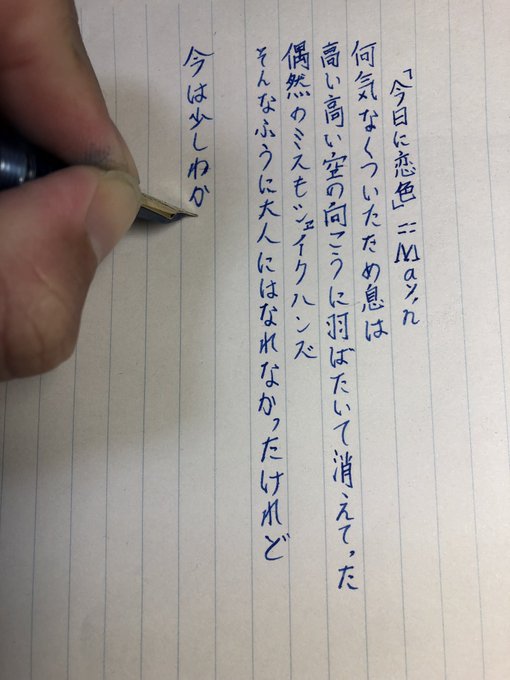 「今日に恋色」== May'n
何気なくついたため息は
高い高い空の向こうに羽ばたいて消えてった
偶然のミスもシェイクハンズ
そんなふうに大人にはなれなかったけれど
今は少しわか